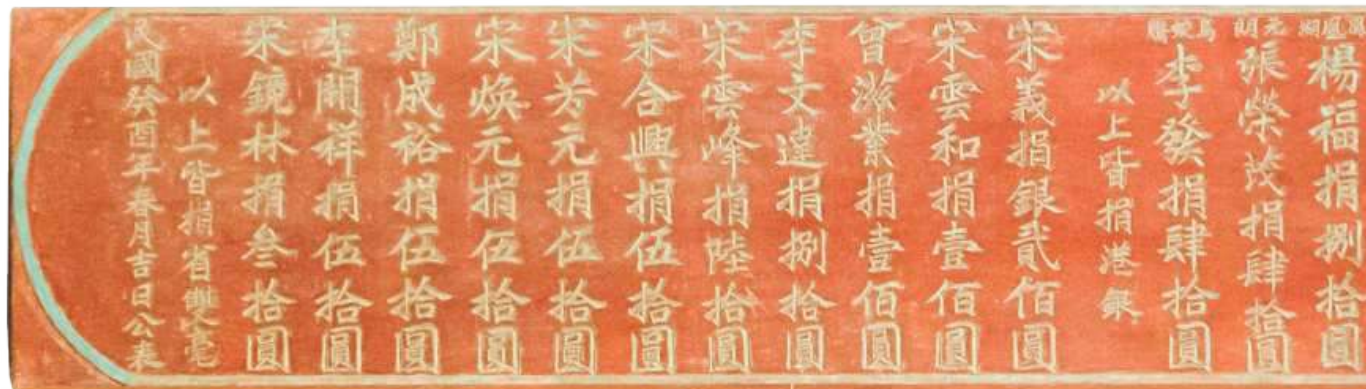 鳳凰湖
楊福捐捌拾圓
元朗
張榮茂捐肆拾圓
烏蛟騰
李發捐肆拾圓
以上皆捐港銀
宋義捐銀貳佰圓
宋雲和捐壹佰圓
曾滋業捐壹佰圓
李文達捐捌拾圓
宋雲峰捐陸拾圓
宋合興捐伍拾圓
宋芳元捐伍拾圓
宋煥元捐伍拾圓
鄭成裕捐伍拾圓
李開祥捐伍拾圓
宋鏡林捐叁拾圓
以上皆捐省雙毫
民國癸酉年春月吉日公奉